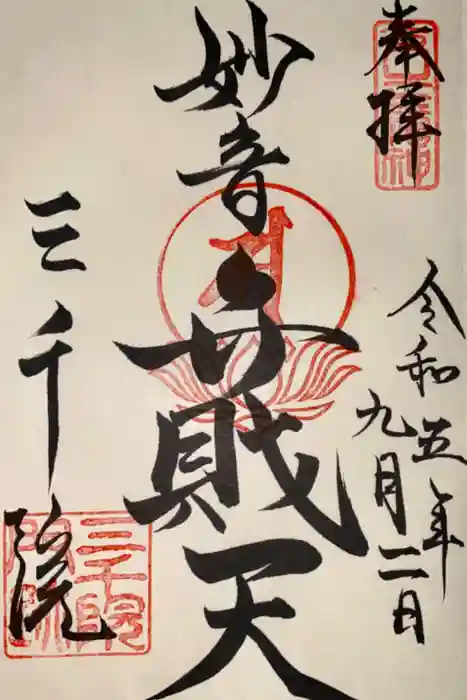 奉拝
令和五年
九月二日
妙音弁財天
三千院
三千院
門跡